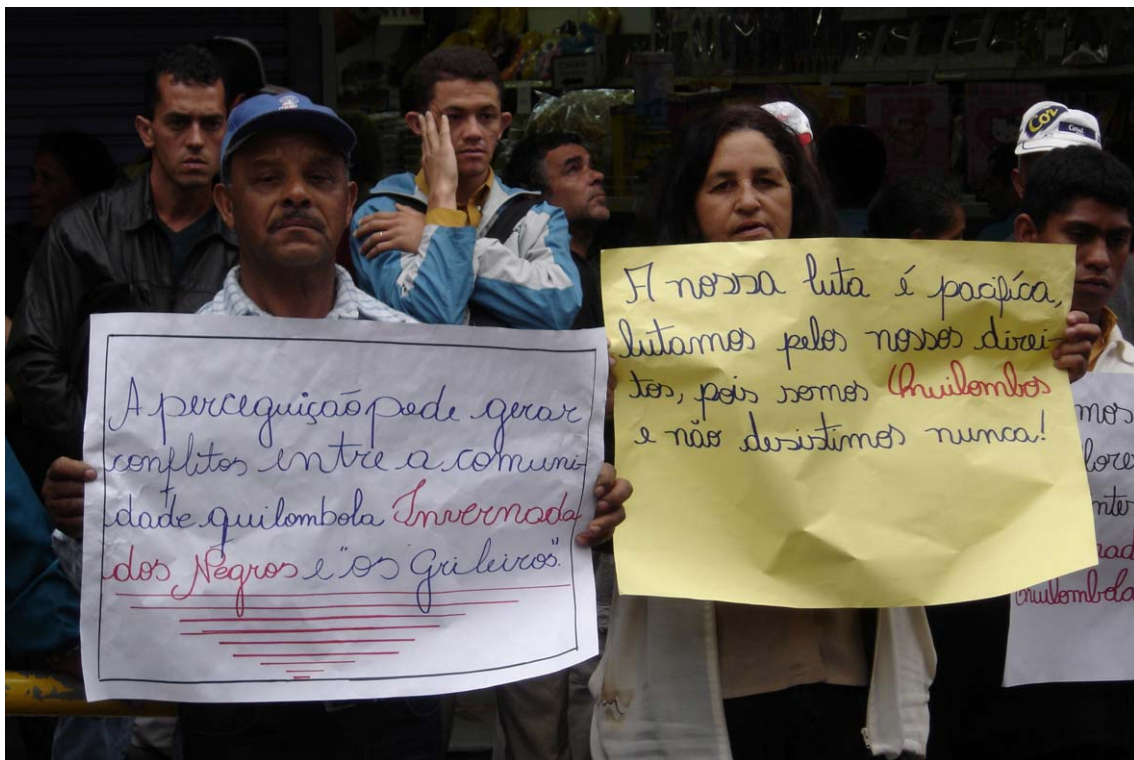 A perceguiçaõ pode gerar
conflitos entre a comuni-
dade quilombola Invernada
dos Negros e "os Grileiros".
A nossa luta é pacifíca,
lutamos pelos nossos direi-
tos, pois somos Quilombos
e não desistimos nunca!
mos
lores
nter
nad
Quilombola